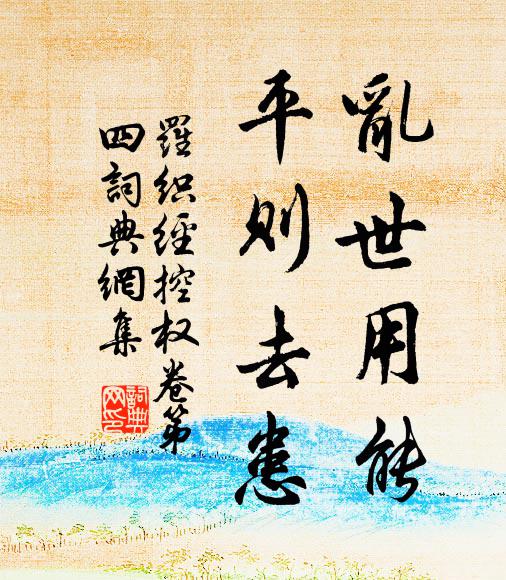 亂世用能
平則去患
羅织經控权卷第
四詞典網集
詞典
网印